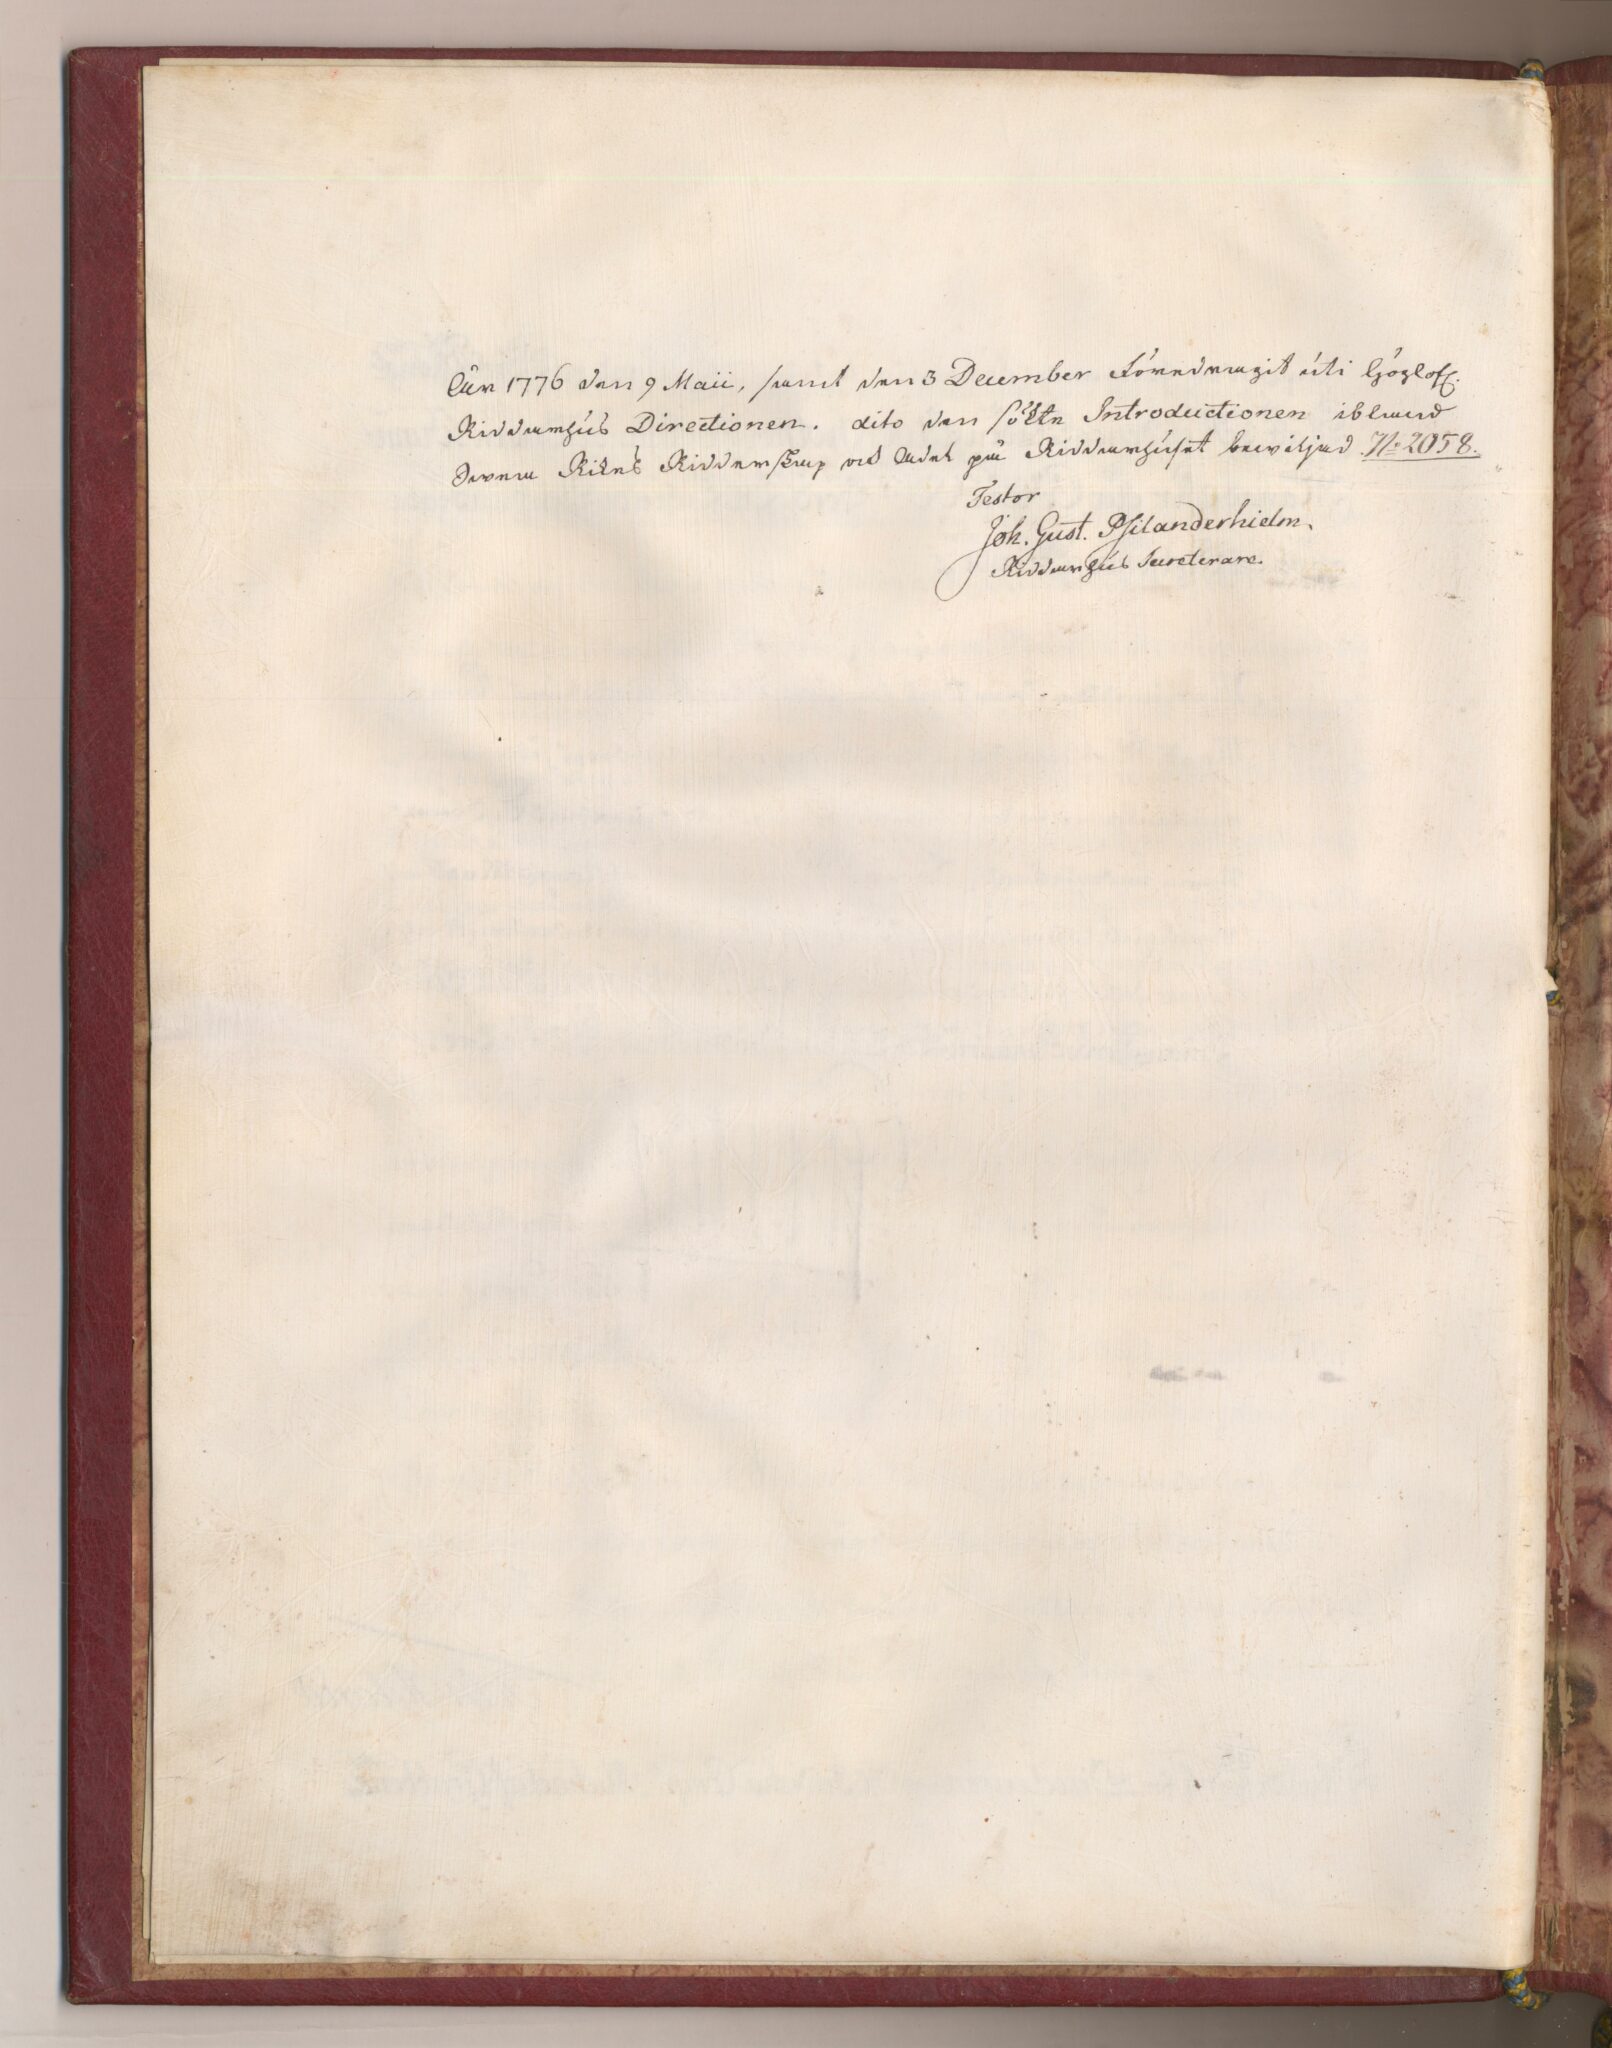 År 1776 den 9 Maii, samt den 3 December Föredragit uti Höglofl.
Riddarhus Directionen. dito den sökta Introductionen ibland
Swea Rikes Ridderskap och Adel på Riddarhuset bewiljad. No 2058.
Testor
Joh. Gust. Psilanderhielm.
Riddarhus Secreterare.